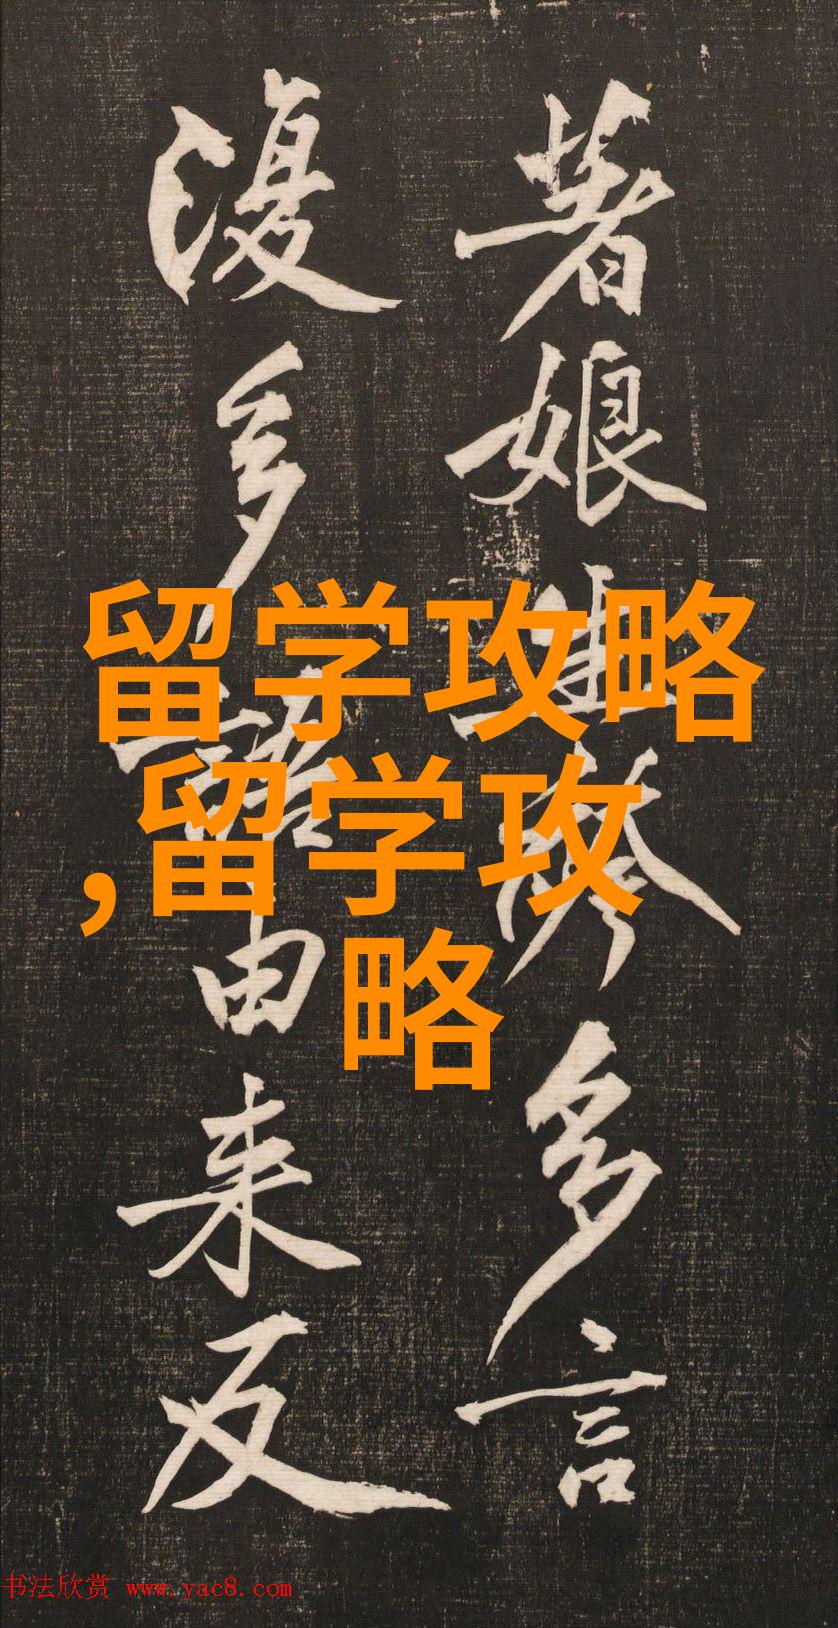 著娘多言
復多語由来反
留学攻略
,留学攻
略
书法欣赏 www.yac8.com